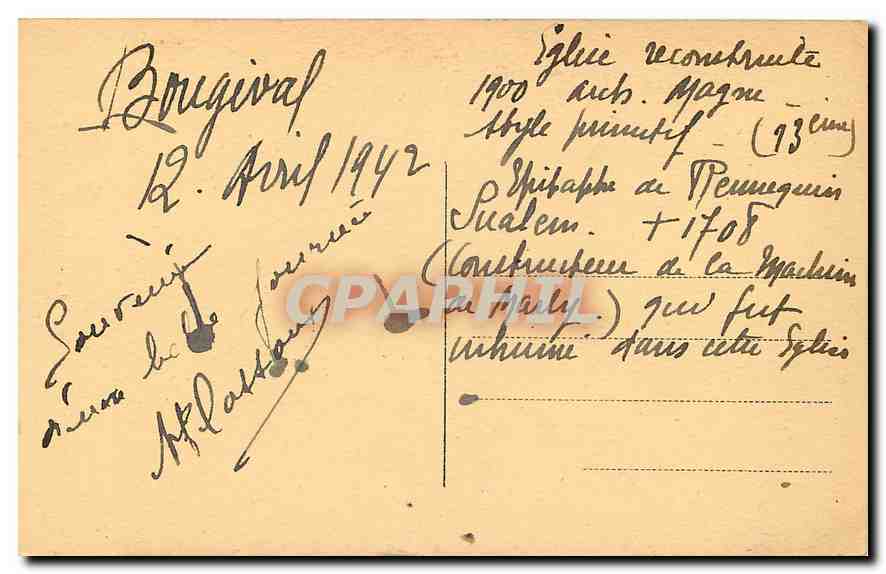 Bougival
12. Avril 1942
Souvenir
d'une belle journée
Eglise reconstruite
1900 arch. Magne -
style primitif - (13ème)
Epitaphe de Rennequin
Sualem. + 1708
(Constructeur de la Machine
de Marly.) qui fut
inhumé dans cette Eglise
CPAPHIL